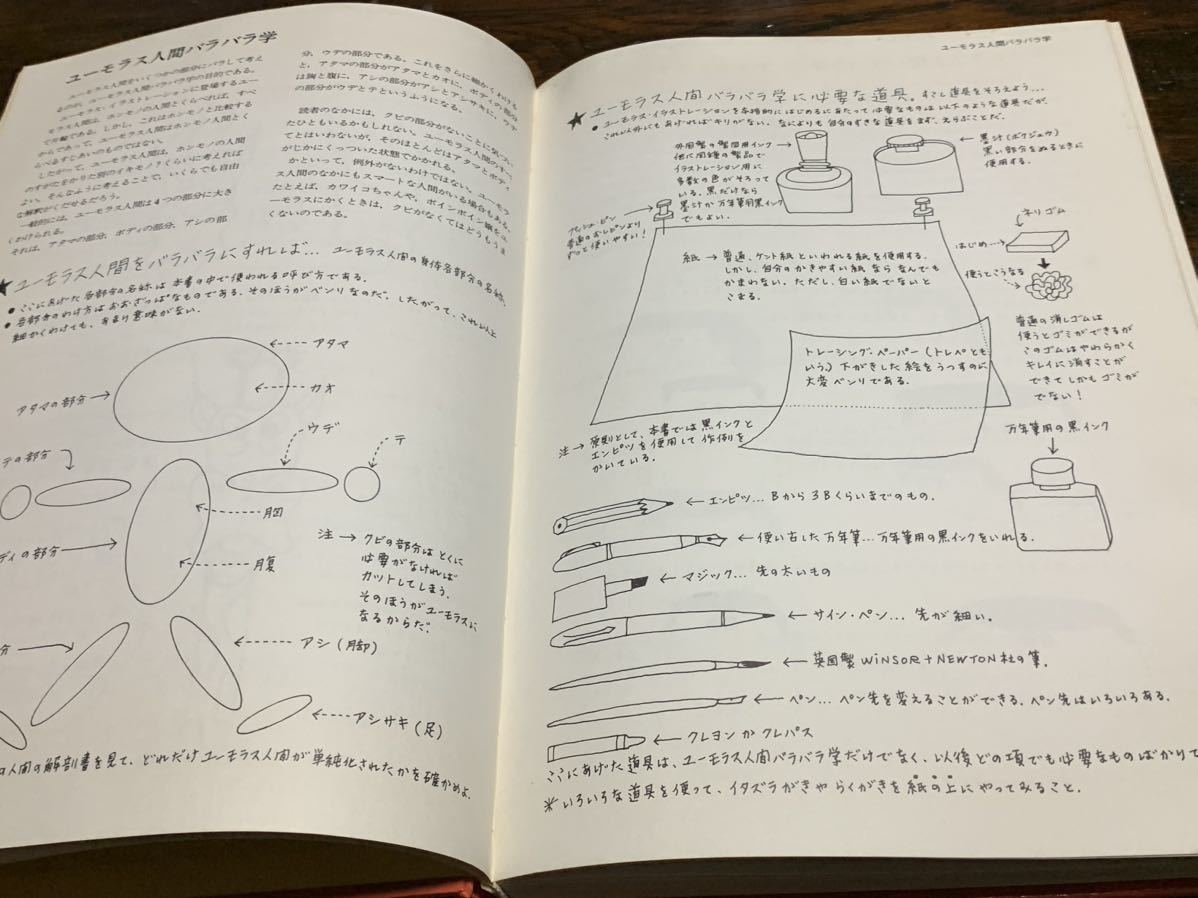 ユーモラス人間バラバラ学
ユーモラス人間をいくつかの部分にバラして考え
るのが、ユーモラス人間バラバラ学の目的である。
ユーモラス・イラストレーションに登場するユー
モラス人間は、ホンモノの人間とくらべれば、すべ
て片輪である。しかし、これはホンモノと比較する
からであって、ユーモラス人間はホンモノ人間とく
らべるすじあいのものではない。
したがって、ユーモラス人間は、ホンモノの人間
のすがたをかりた別のイキモノ？くらいに考えれば
よい。そんなように考えることで、いくらでも自由
な解釈がくだせるだろう。
一般的には、ユーモラス人間は4つの部分に大き
くわけられる。
それは、アタマの部分、ボディの部分、アシの部
分、ウデの部分である。これをさらに細かくわける
と、アタマの部分がアタマとカオに、ボディの部分
は胸と腹に、アシの部分がアシとアシサキに、ウデ
の部分がウデとテというふうになる。
読者のなかには、クビの部分がないことに気づい
たひともいるかもしれない。ユーモラス人間のすべ
てとはいわないが、そのほとんどはアタマとボディ
がじかにくっついた状態でかかれる。
かといって、例外がないわけではない。ユーモラ
ス人間のなかにもスマートな人間がいる場合もある。
たとえば、カワイコちゃんや、ボインボイン嬢をユ
ーモラスにかくときは、クビがなくてはどうもうま
くないのである。
★ユーモラス人間をバラバラにすれば… ユーモラス人間の身体各部分の名称、
●ここにあげた各部分の名称は本書の中で使われる呼び方である。
●各部分のわけ方はおおざっぱなものである。そのほうがベンリなのだ。したがって、これ以上
細かくわけても、あまり意味がない。
アタマ
カオ
アタマの部分
ウデ
テ
デの部分
胸
ディの部分
腹
注→クビの部分はとくに
必要がなければ
カットしてしまう。
そのほうがユーモラスに
なるからだ。
分
アシ（脚）
アシサキ（足）
の人間の解剖書を見て、どれだけユーモラス人間が単純化されたかを確かめよ。
ユーモラス人間バラバラ学
★ユーモラス人間バラバラ学に必要な道具。すこし道具をそろえよう…
●ユーモラス・イラストレーションを本格的にはじめるにあたって必要なものは以下のような道具だが、
これ以外にもあげればキリがない。なによりも自分のすきな道具をまず、えらぶことだ。
外国製の製図用インク
他に同種の製品で
イラストレーション用に
多数の色がそろって
いる。黒だけなら
墨汁か万年筆用黒インク
でもよい。
墨汁（ボクジュウ）
黒い部分をぬるときに
使用する。
プッシュ・ピン
普通のおしピンより
ずっと使いやすい！
ネリゴム
はじめ…
使うとこうなる
紙→普通、ケント紙といわれる紙を使用する。
しかし、自分のかきやすい紙ならなんでも
かまわない。ただし、白い紙でないと
こまる。
普通の消しゴムは
使うとゴミができるが
このゴムはやわらかく
キレイに消すことが
できてしかもゴミが
でない！
トレーシング・ペーパー（トレペとも
いう。）下がきした絵をうつすのに
大変ベンリである。
注→原則として、本書では黒インクと
エンピツを使用して作例を
かいている。
万年筆用の黒インク
←エンピツ…Bから3Bくらいまでのもの。
←使い古した万年筆…万年筆用の黒インクをいれる。
←マジック…先の太いもの
←サイン・ペン…先が細い。
←英国製WINSOR+NEWTON社の筆。
←ペン…ペン先を変えることができる。ペン先はいろいろある。
←クレヨンかクレパス
ここにあげた道具は、ユーモラス人間バラバラ学だけでなく、以後どの項でも必要なものばかりで
※いろいろな道具を使って、イタズラがきやらくがきを紙の上にやってみること。